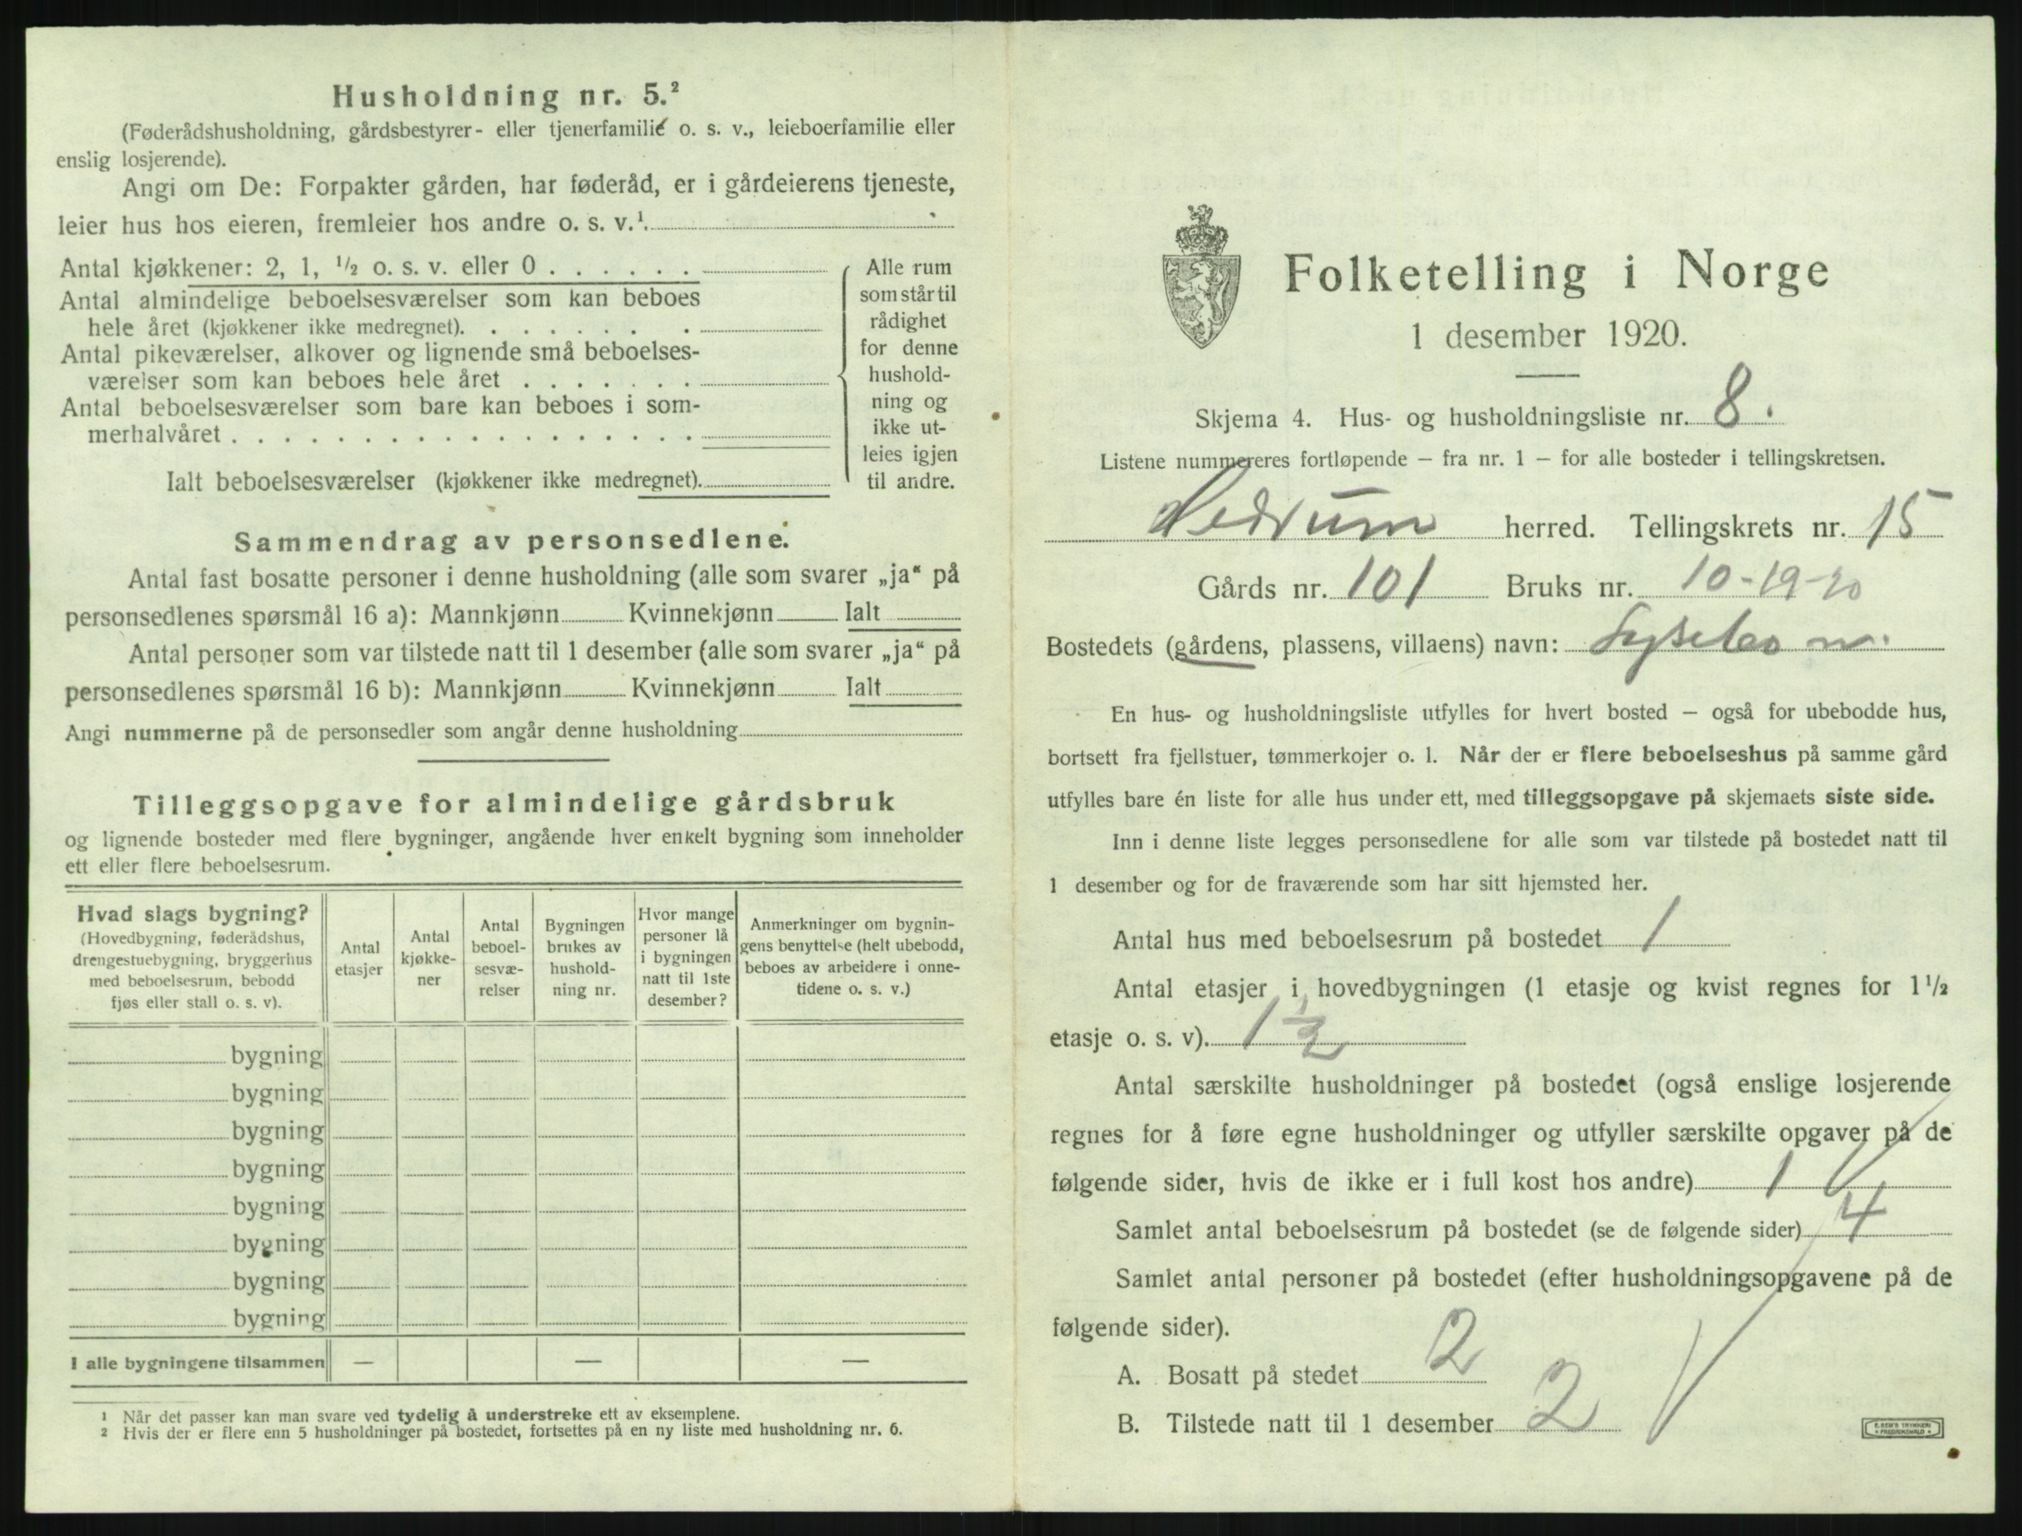 Husholdning nr. 5.²
(Føderådshusholdning, gårdsbestyrer- eller tjenerfamilie o. s. v., leieboerfamilie eller
enslig losjerende).
Angi om De: Forpakter gården, har føderåd, er i gårdeierens tjeneste,
leier hus hos eieren, fremleier hos andre o. s. v.¹.
Antal kjøkkener: 2, 1, ½ o. s. v. eller 0 . . . . . .
Antal almindelige beboelsesværelser som kan beboes
hele året (kjøkkener ikke medregnet). . . . . . . .
Antal pikeværelser, alkover og lignende små beboelses-
værelser som kan beboes hele året . . . . . . .
Antal beboelsesværelser som bare kan beboes i som-
merhalvåret . . . . . . . . . . . . . . . . . .
Ialt beboelsesværelser (kjøkkener ikke medregnet).
Alle rum
som står til
rådighet
for denne
hushold-
ning og
ikke ut-
leies igjen
til andre.
Sammendrag av personsedlene.
Antal fast bosatte personer i denne husholdning (alle som svarer „ja“ på
personsedlenes spørsmål 16 a): Mannkjønn Kvinnekjønn Ialt
Antal personer som var tilstede natt til 1 desember (alle som svarer „ja“ på
personsedlenes spørsmål 16 b): Mannkjønn Kvinnekjønn Ialt
Angi nummerne på de personsedler som angår denne husholdning
Tilleggsopgave for almindelige gårdsbruk
og lignende bosteder med flere bygninger, angående hver enkelt bygning som inneholder
ett eller flere beboelsesrum.
Hvad slags bygning?
(Hovedbygning, føderådshus,
drengestuebygning, bryggerhus
med beboelsesrum, bebodd
fjøs eller stall o. s. v).
Antal
etasjer
Antal
kjøkke-
ner
Antal
beboel-
sesvæ-
relser
Bygningen
brukes av
hushold-
ning nr.
Hvor mange
personer lå
i bygningen
natt til 1ste
desember?
Anmerkninger om bygnin-
gens benyttelse (helt ubebodd,
beboes av arbeidere i onne-
tidene o. s. v.)
bygning
bygning
bygning
bygning
bygning
bygning
bygning
bygning
I alle bygningene tilsammen — — —
¹ Når det passer kan man svare ved tydelig å understreke ett av eksemplene.
² Hvis der er flere enn 5 husholdninger på bostedet, fortsettes på en ny liste med husholdning nr. 6.
Folketelling i Norge
1 desember 1920.
Skjema 4. Hus- og husholdningsliste nr. 8.
Listene nummereres fortløpende – fra nr. 1 – for alle bosteder i tellingskretsen.
Hedrum herred. Tellingskrets nr. 15
Gårds nr. 101 Bruks nr. 10-19-20
Bostedets (gårdens, plassens, villaens) navn: Lysebo n.
En hus- og husholdningsliste utfylles for hvert bosted – også for ubebodde hus,
bortsett fra fjellstuer, tømmerkojer o. l. Når der er flere beboelseshus på samme gård
utfylles bare én liste for alle hus under ett, med tilleggsopgave på skjemaets siste side.
Inn i denne liste legges personsedlene for alle som var tilstede på bostedet natt til
1 desember og for de fraværende som har sitt hjemsted her.
Antal hus med beboelsesrum på bostedet 1
Antal etasjer i hovedbygningen (1 etasje og kvist regnes for 1½
etasje o. s. v). 1½
Antal særskilte husholdninger på bostedet (også enslige losjerende
regnes for å føre egne husholdninger og utfyller særskilte opgaver på de
følgende sider, hvis de ikke er i full kost hos andre) 1
Samlet antal beboelsesrum på bostedet (se de følgende sider) 4
Samlet antal personer på bostedet (efter husholdningsopgavene på de
følgende sider).
A. Bosatt på stedet 2
B. Tilstede natt til 1 desember 2
E. SEM'S TRYKKERI
FREDRIKSHALD